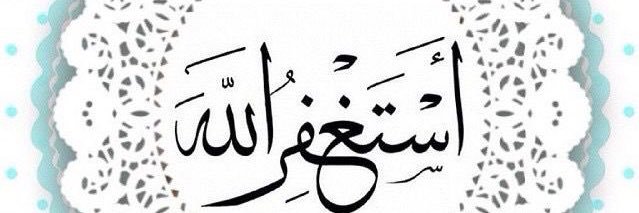 أَسْتَغْفِرُ اللَّه